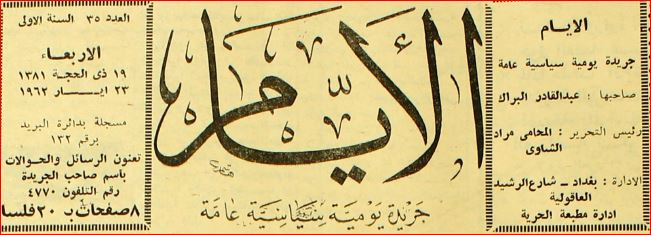 الايام
جريدة يومية سياسية عامة
صاحبها : عبدالقادر البراك
رئيس التحرير : المحامي مراد
الشاوى
الادارة : بغداد ــ شارع الرشيد
العاقولية
ادارة مطبعة الحرية
الأيام
جريدة يومية سياسية عامة
العدد ٣٥ السنة الاولى
الاربعاء
١٩ ذى الحجة ١٣٨١
٢٣ ايـــار ١٩٦٢
مسجلة بدائرة البريد
برقم ١٣٢
تعنون الرسائل والحوالات
باسم صاحب الجريدة
رقم التلفون ٤٧٧٠
٨ صفحات بـ ٢٠ فلسا